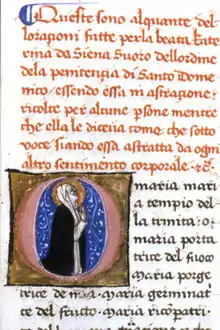 Queste sono alquante del
lorationi fatte per la beata kate
rina da Siena Suoro dellordine
dela penitenzia di Santo Dome
nico essendo essa in astrazione
ricolte per alcune psone mentre
che ella le diceua come che sotto
uoce siando essa astratta da ogni
altro sentimento corporale
O maria mari
a tempio del
la trinita: o
maria porta
trice del fuoco
Maria porge
trice de mia. maria germinat
ce del frutto. maria ricōpatri